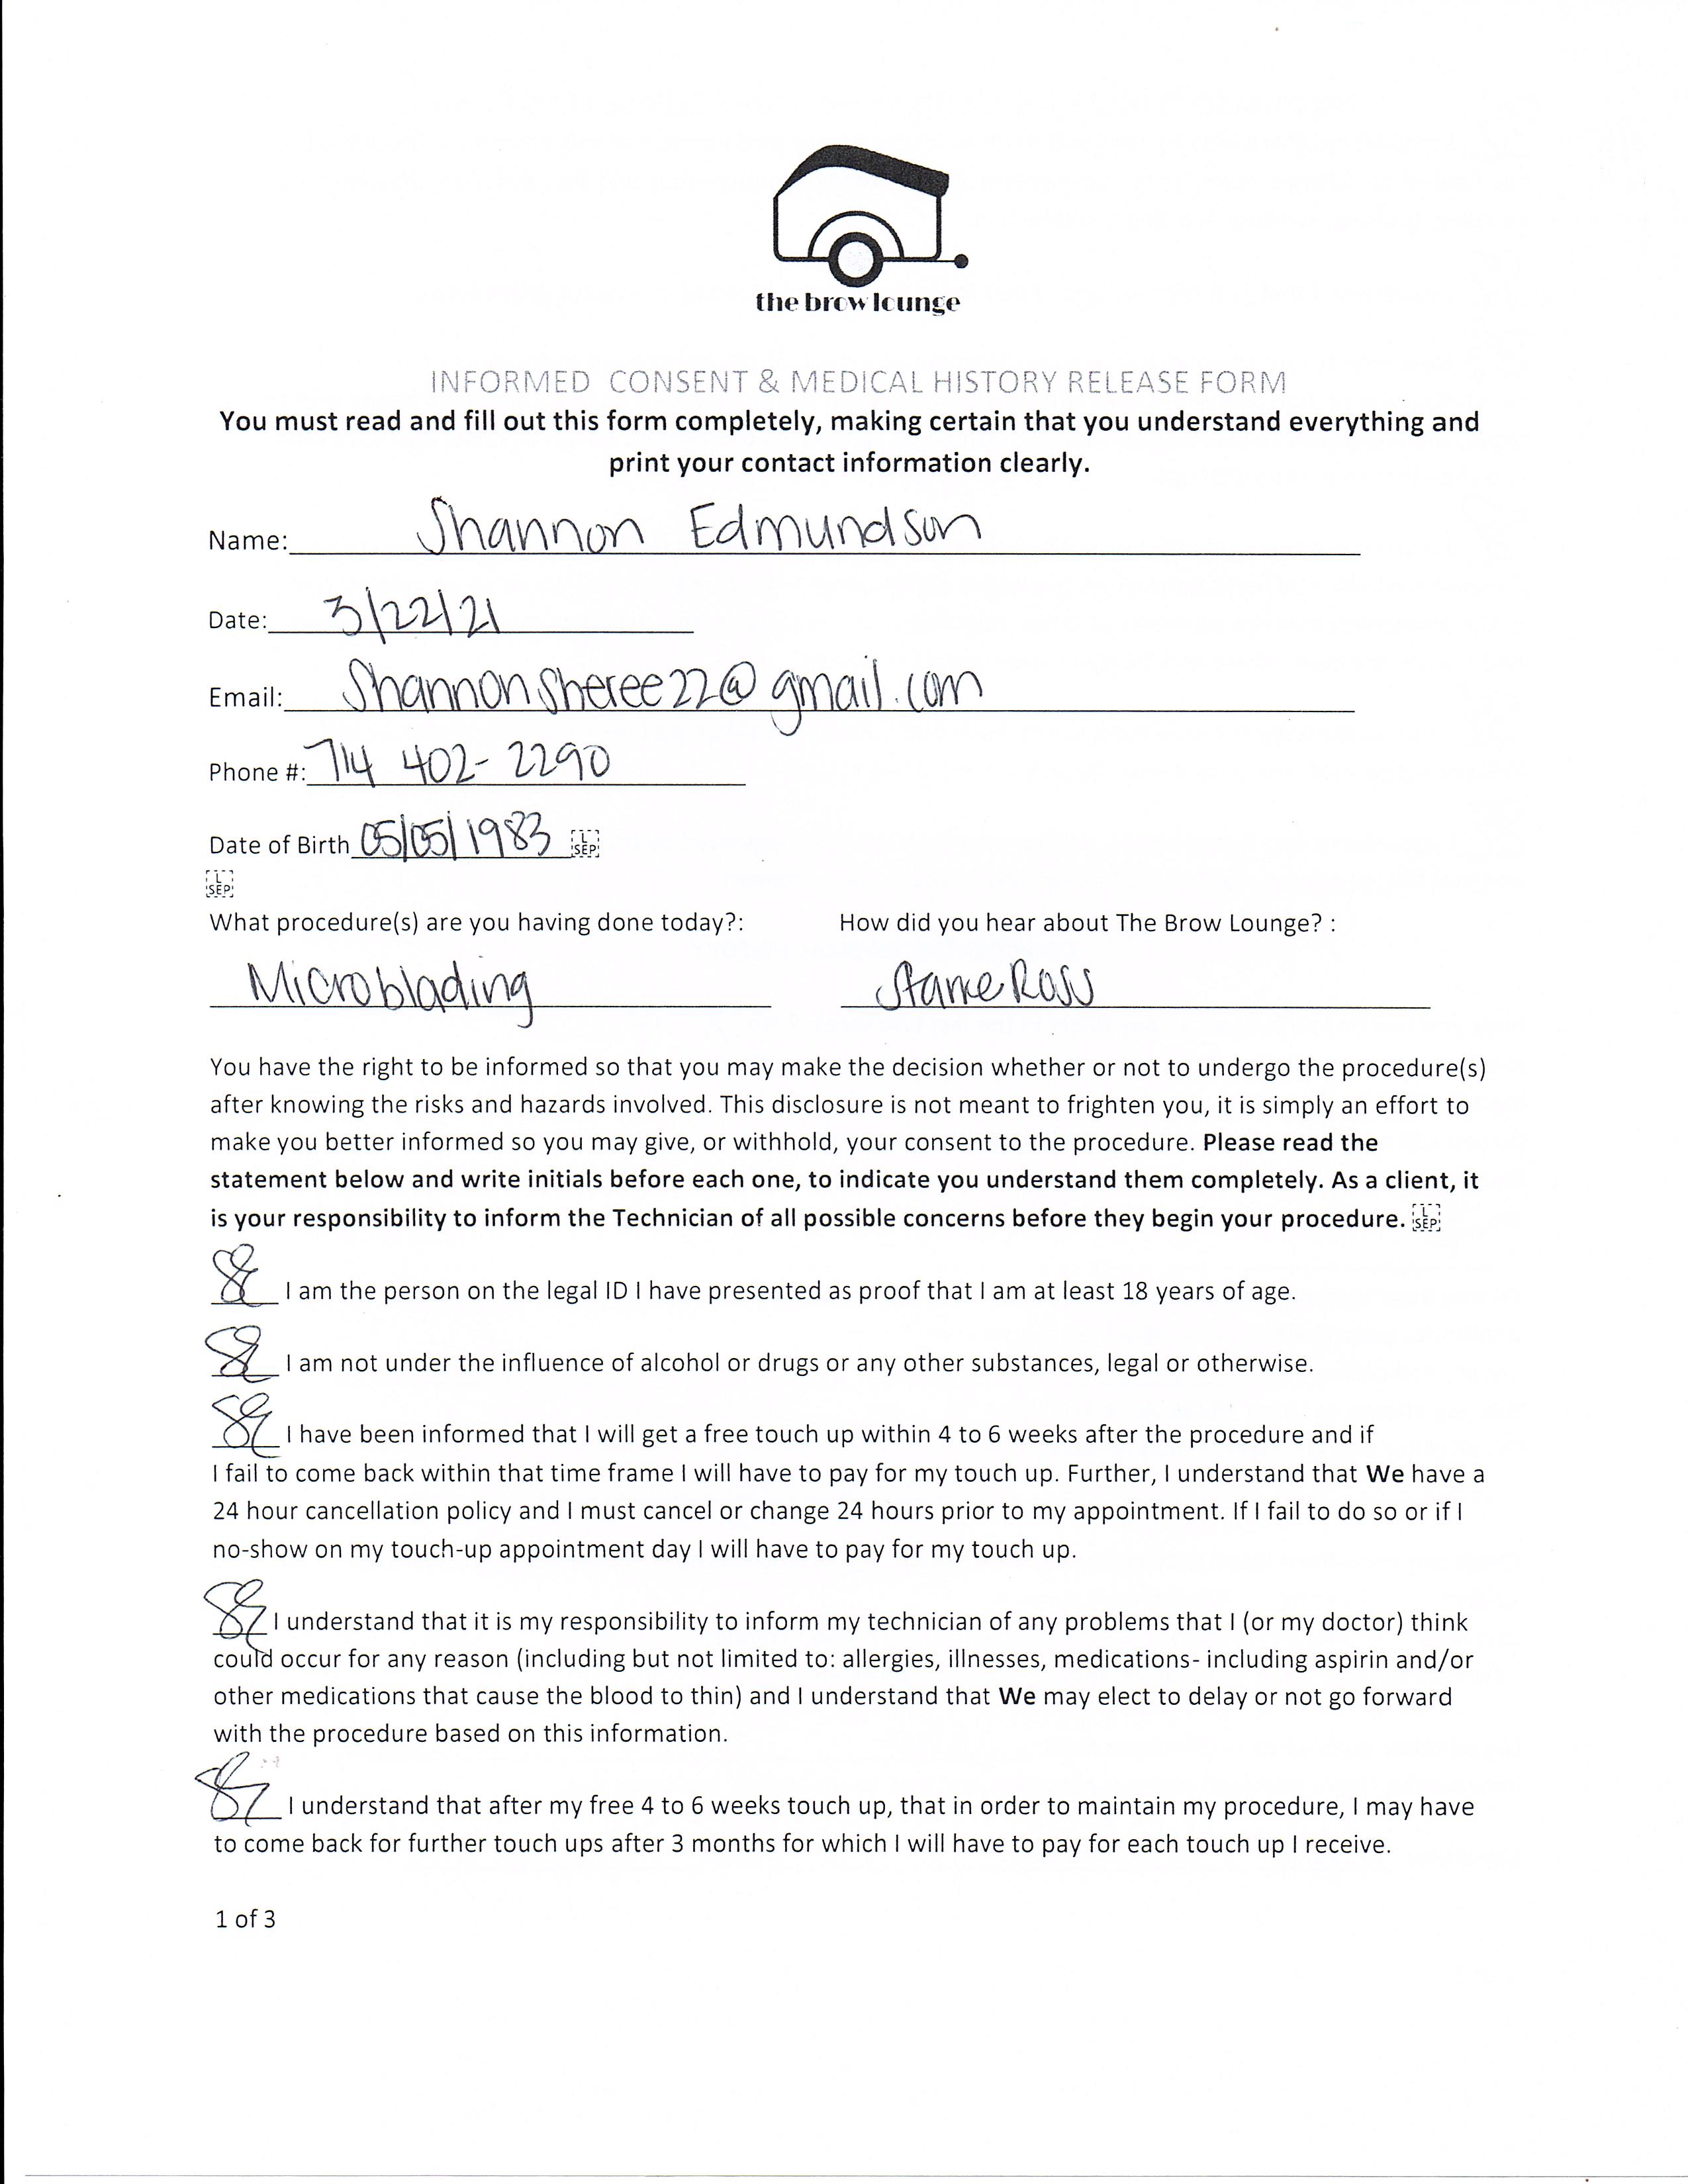 the brow lounge
INFORMED CONSENT & MEDICAL HISTORY RELEASE FORM
You must read and fill out this form completely, making certain that you understand everything and
print your contact information clearly.
Name: Shannon Edmundson
Date: 3/22/21
Email: Shannonsheree22@gmail.com
Phone #: 714 402-2290
Date of Birth 05/05/1983 L SEP
L SEP
What procedure(s) are you having done today?: How did you hear about The Brow Lounge? :
Microblading Ross
You have the right to be informed so that you may make the decision whether or not to undergo the procedure(s)
after knowing the risks and hazards involved. This disclosure is not meant to frighten you, it is simply an effort to
make you better informed so you may give, or withhold, your consent to the procedure. Please read the
statement below and write initials before each one, to indicate you understand them completely. As a client, it
is your responsibility to inform the Technician of all possible concerns before they begin your procedure. L SEP
SE I am the person on the legal ID I have presented as proof that I am at least 18 years of age.
SE I am not under the influence of alcohol or drugs or any other substances, legal or otherwise.
SE I have been informed that I will get a free touch up within 4 to 6 weeks after the procedure and if
I fail to come back within that time frame I will have to pay for my touch up. Further, I understand that We have a
24 hour cancellation policy and I must cancel or change 24 hours prior to my appointment. If I fail to do so or if I
no-show on my touch-up appointment day I will have to pay for my touch up.
SE I understand that it is my responsibility to inform my technician of any problems that I (or my doctor) think
could occur for any reason (including but not limited to: allergies, illnesses, medications- including aspirin and/or
other medications that cause the blood to thin) and I understand that We may elect to delay or not go forward
with the procedure based on this information.
SE I understand that after my free 4 to 6 weeks touch up, that in order to maintain my procedure, I may have
to come back for further touch ups after 3 months for which I will have to pay for each touch up I receive.
1 of 3